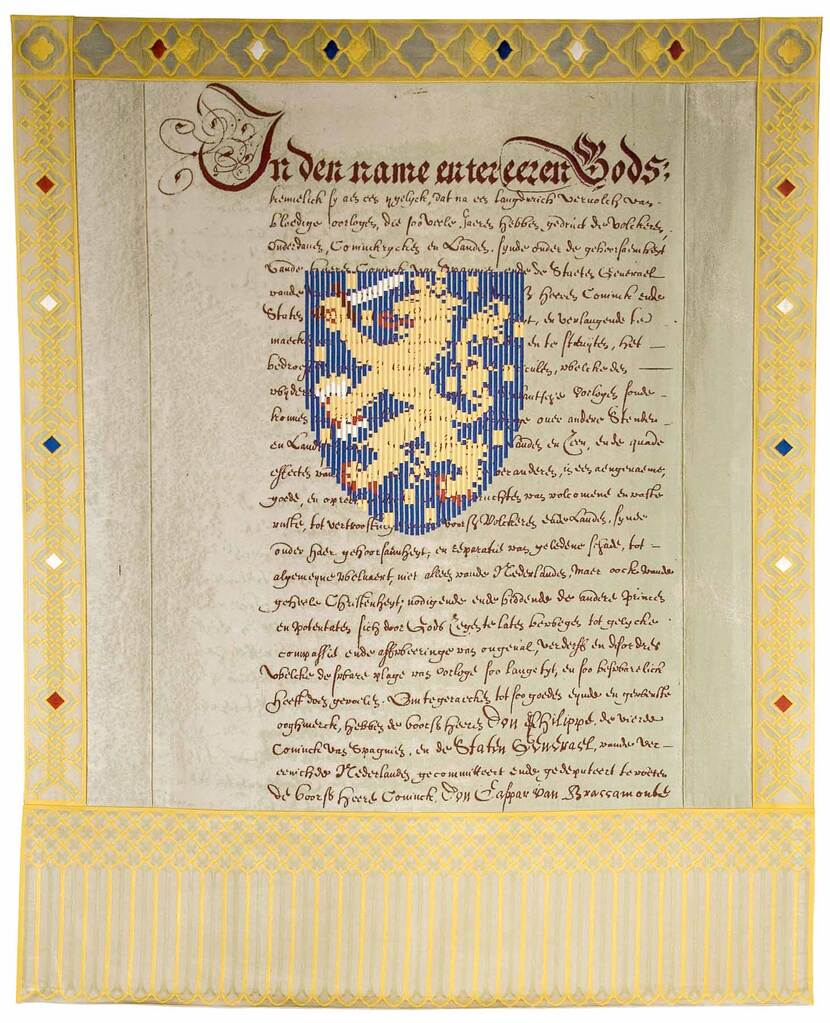 In den name ende ter eeren Gods:
kennelick sy aen een ygelyck, dat na een langdurich vervolch van
bloedige oorlogen, die soo veele Jaeren hebben gedruct de volckeren,
onderdanen, Coninckrycken en Landen, synde onder de gehoorsaemheyt
vande Heeren Coninck van Spagnien ende de Staten Generael
vande Heeren Coninck ende
Staten en verlangende te
maecken en te sluyten, het
welcke des
oorlogen soude
over andere Stenden
en Land Landen en Zeen, ende quade
effecten van veranderen, in een aengenaeme,
goede, en opre vruchten van volcomene en vaste
ruste, tot vertroostinge voorsz Volckeren ende Landen, synde
onder haer gehoorsaemheyt; en reparatie van geledene schade, tot
algemeyne welvaert, niet alleen vande Nederlanden, maer oock vande
geheele Christenheyt; nodigende ende biddende de andere Princen
en Potentaten sich door Gods Zegen te laten bewegen tot gelycke
compassie ende afkeeringe van ongeval, verderff en disordres
Welcke de sware plage van oorloge soo lange tyt, en soo beswaerlick
heeft doen gevoelen. Om te geraecken tot soo goeden eynde en gewenste
ooghmerck, hebben de voorsz Heeren Don Philippe, de vierde
Coninck van Spagnien, en de Staten Generael, vande Ver-
eenichde Nederlanden gecommitteert ende gedeputeert te weten
de voorsz Heere Coninck, Don Caspar van Braccamonte